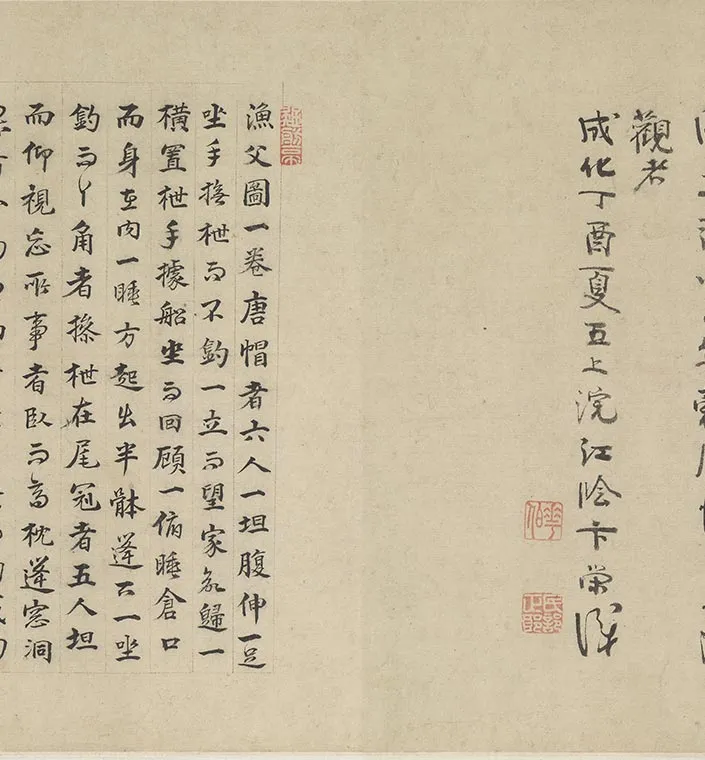 觀者
成化丁酉夏五上浣江陰卞榮識
華伯
民部正郎
漁父圖一卷唐帽者六人一坦腹伸一足
坐手撫枻而不釣一立而望家歸一
橫置枻手據船坐而回顧一俯睡倉口
而身在内一睡方起出半體篷下一坐
釣而丫角者操枻在尾冠者五人坦
而仰視忘所事者臥而高枕篷窓洞